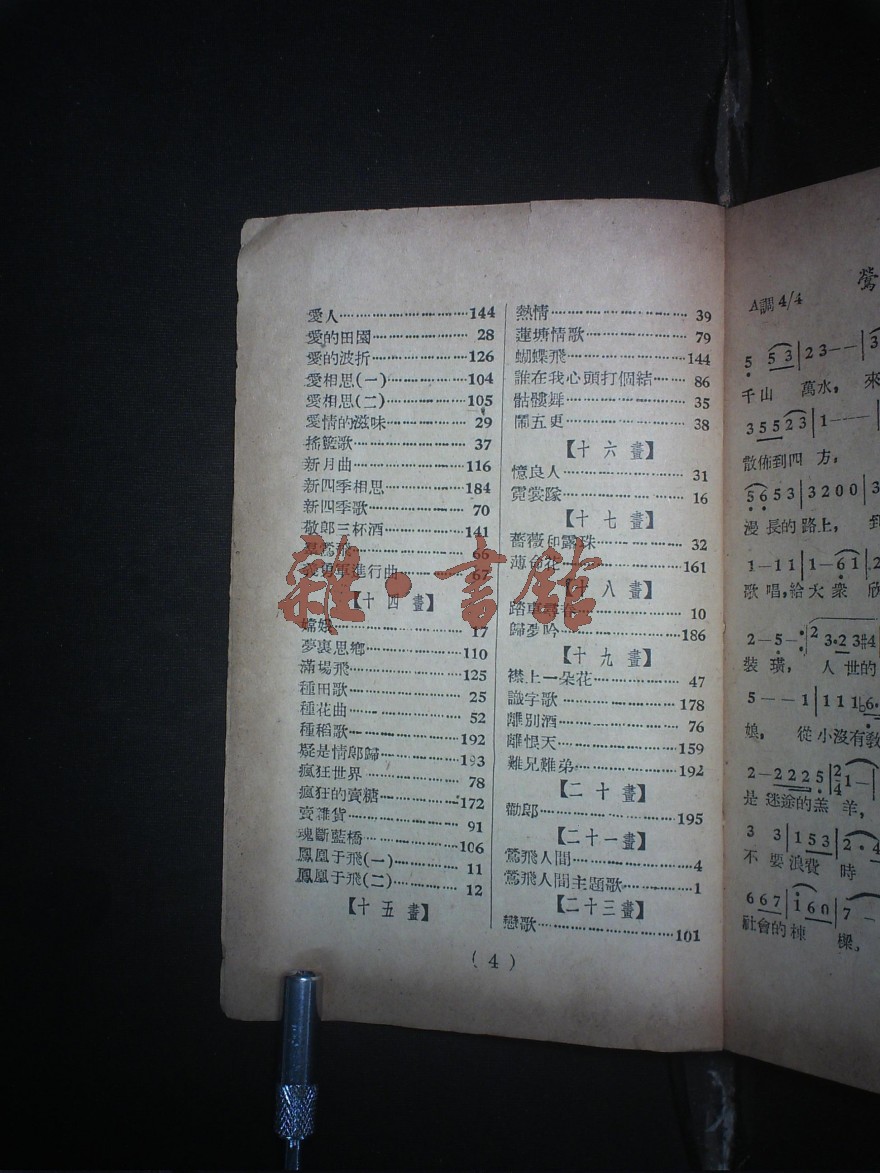 愛人 144
愛的田園 28
愛的波折 126
愛相思(一) 104
愛相思(二) 105
愛情的滋味 29
搖籃歌 37
新月曲 116
新四季相思 184
新四季歌 70
敬郎三杯酒 141
鶯飛 66
義勇軍進行曲 67
【十四畫】
嫦娥 17
夢裏思鄉 110
滿場飛 125
種田歌 25
種花曲 52
種稻歌 192
疑是情郎歸 193
瘋狂世界 78
瘋狂的賣糖 172
賣雜貨 91
魂斷藍橋 106
鳳凰于飛(一) 11
鳳凰于飛(二) 12
【十五畫】
熱情 39
蓮塘情歌 79
蝴蝶飛 144
誰在我心頭打個結 86
骷髏舞 35
鬧五更 38
【十六畫】
憶良人 31
霓裳隊 16
【十七畫】
薔薇和露珠 32
薄命花 161
【十八畫】
踏車尋春 10
歸夢吟 186
【十九畫】
襟上一朵花 47
識字歌 178
離別酒 76
離恨天 159
難兄難弟 192
【二十畫】
勸郎 195
【二十一畫】
鶯飛人間 4
鶯飛人間主題歌 1
【二十三畫】
戀歌 101
(4)
雜·書館
鶯
A調 4/4
5 5 3 | 2 3 — — | 3
千山 萬水， 來
3 5 5 2 3 | 1 — — — |
散佈到四 方，
5 6 5 3 | 3 2 0 0 | 3
漫長的路上， 到
1 — 1 1 | 1 — 6 1 | 2
歌唱，給大衆 欣
2 — 5 — : | 2 3·2 3 #4
裝璜， 人世的
5 — — 1 | 1 1 1 6·
娘， 從小沒有教
2 — 2 2 2 5 | 2/4 1 — |
是迷途的羔羊，
3 3 | 1 5 3 | 2·4
不要浪費 時
6 6 7 | 1 6 0 | 7 —
社會的棟 樑。